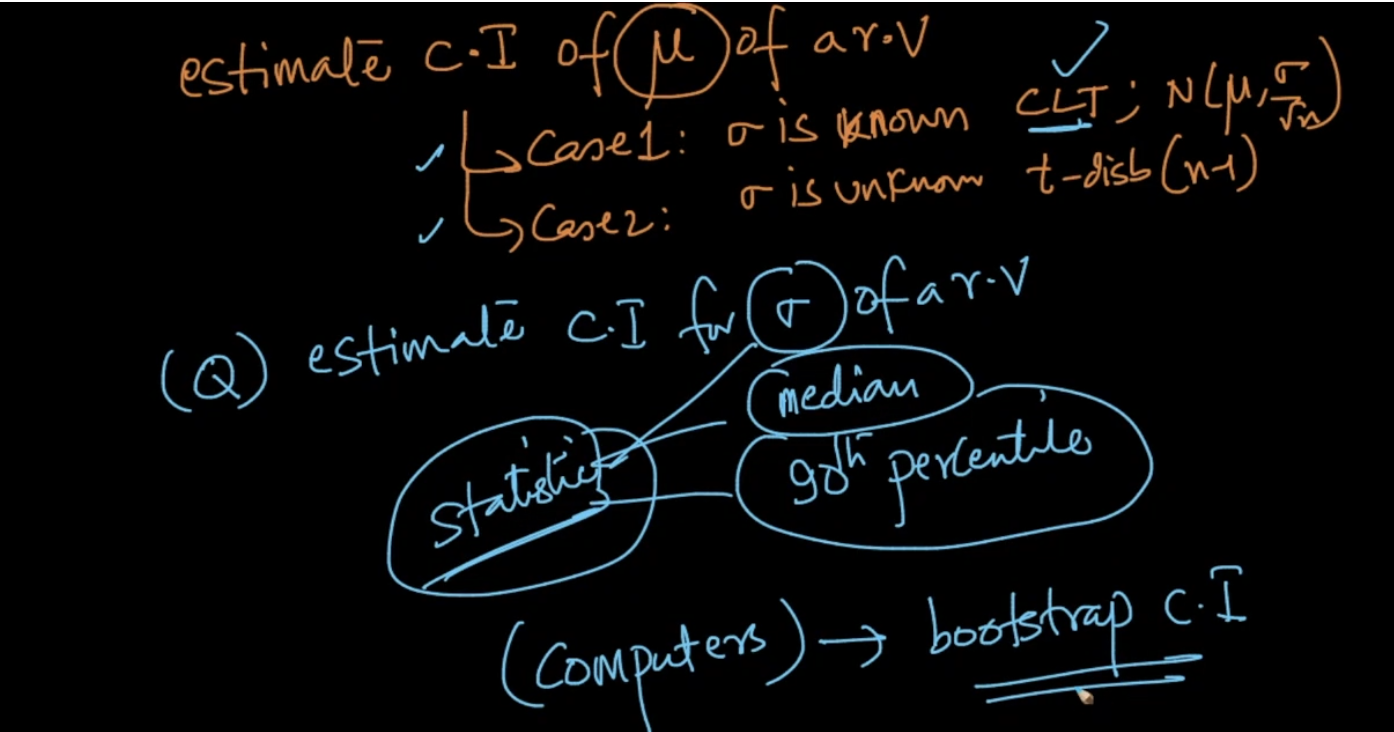 estimate C.I of μ of a r.v
Case1: σ is known CLT; N(μ, σ/√n)
Case2: σ is unknown t-disb(n-1)
(Q) estimate C.I for σ of a r.v
median
90th percentile
statistics
(Computers) → bootstrap C.I